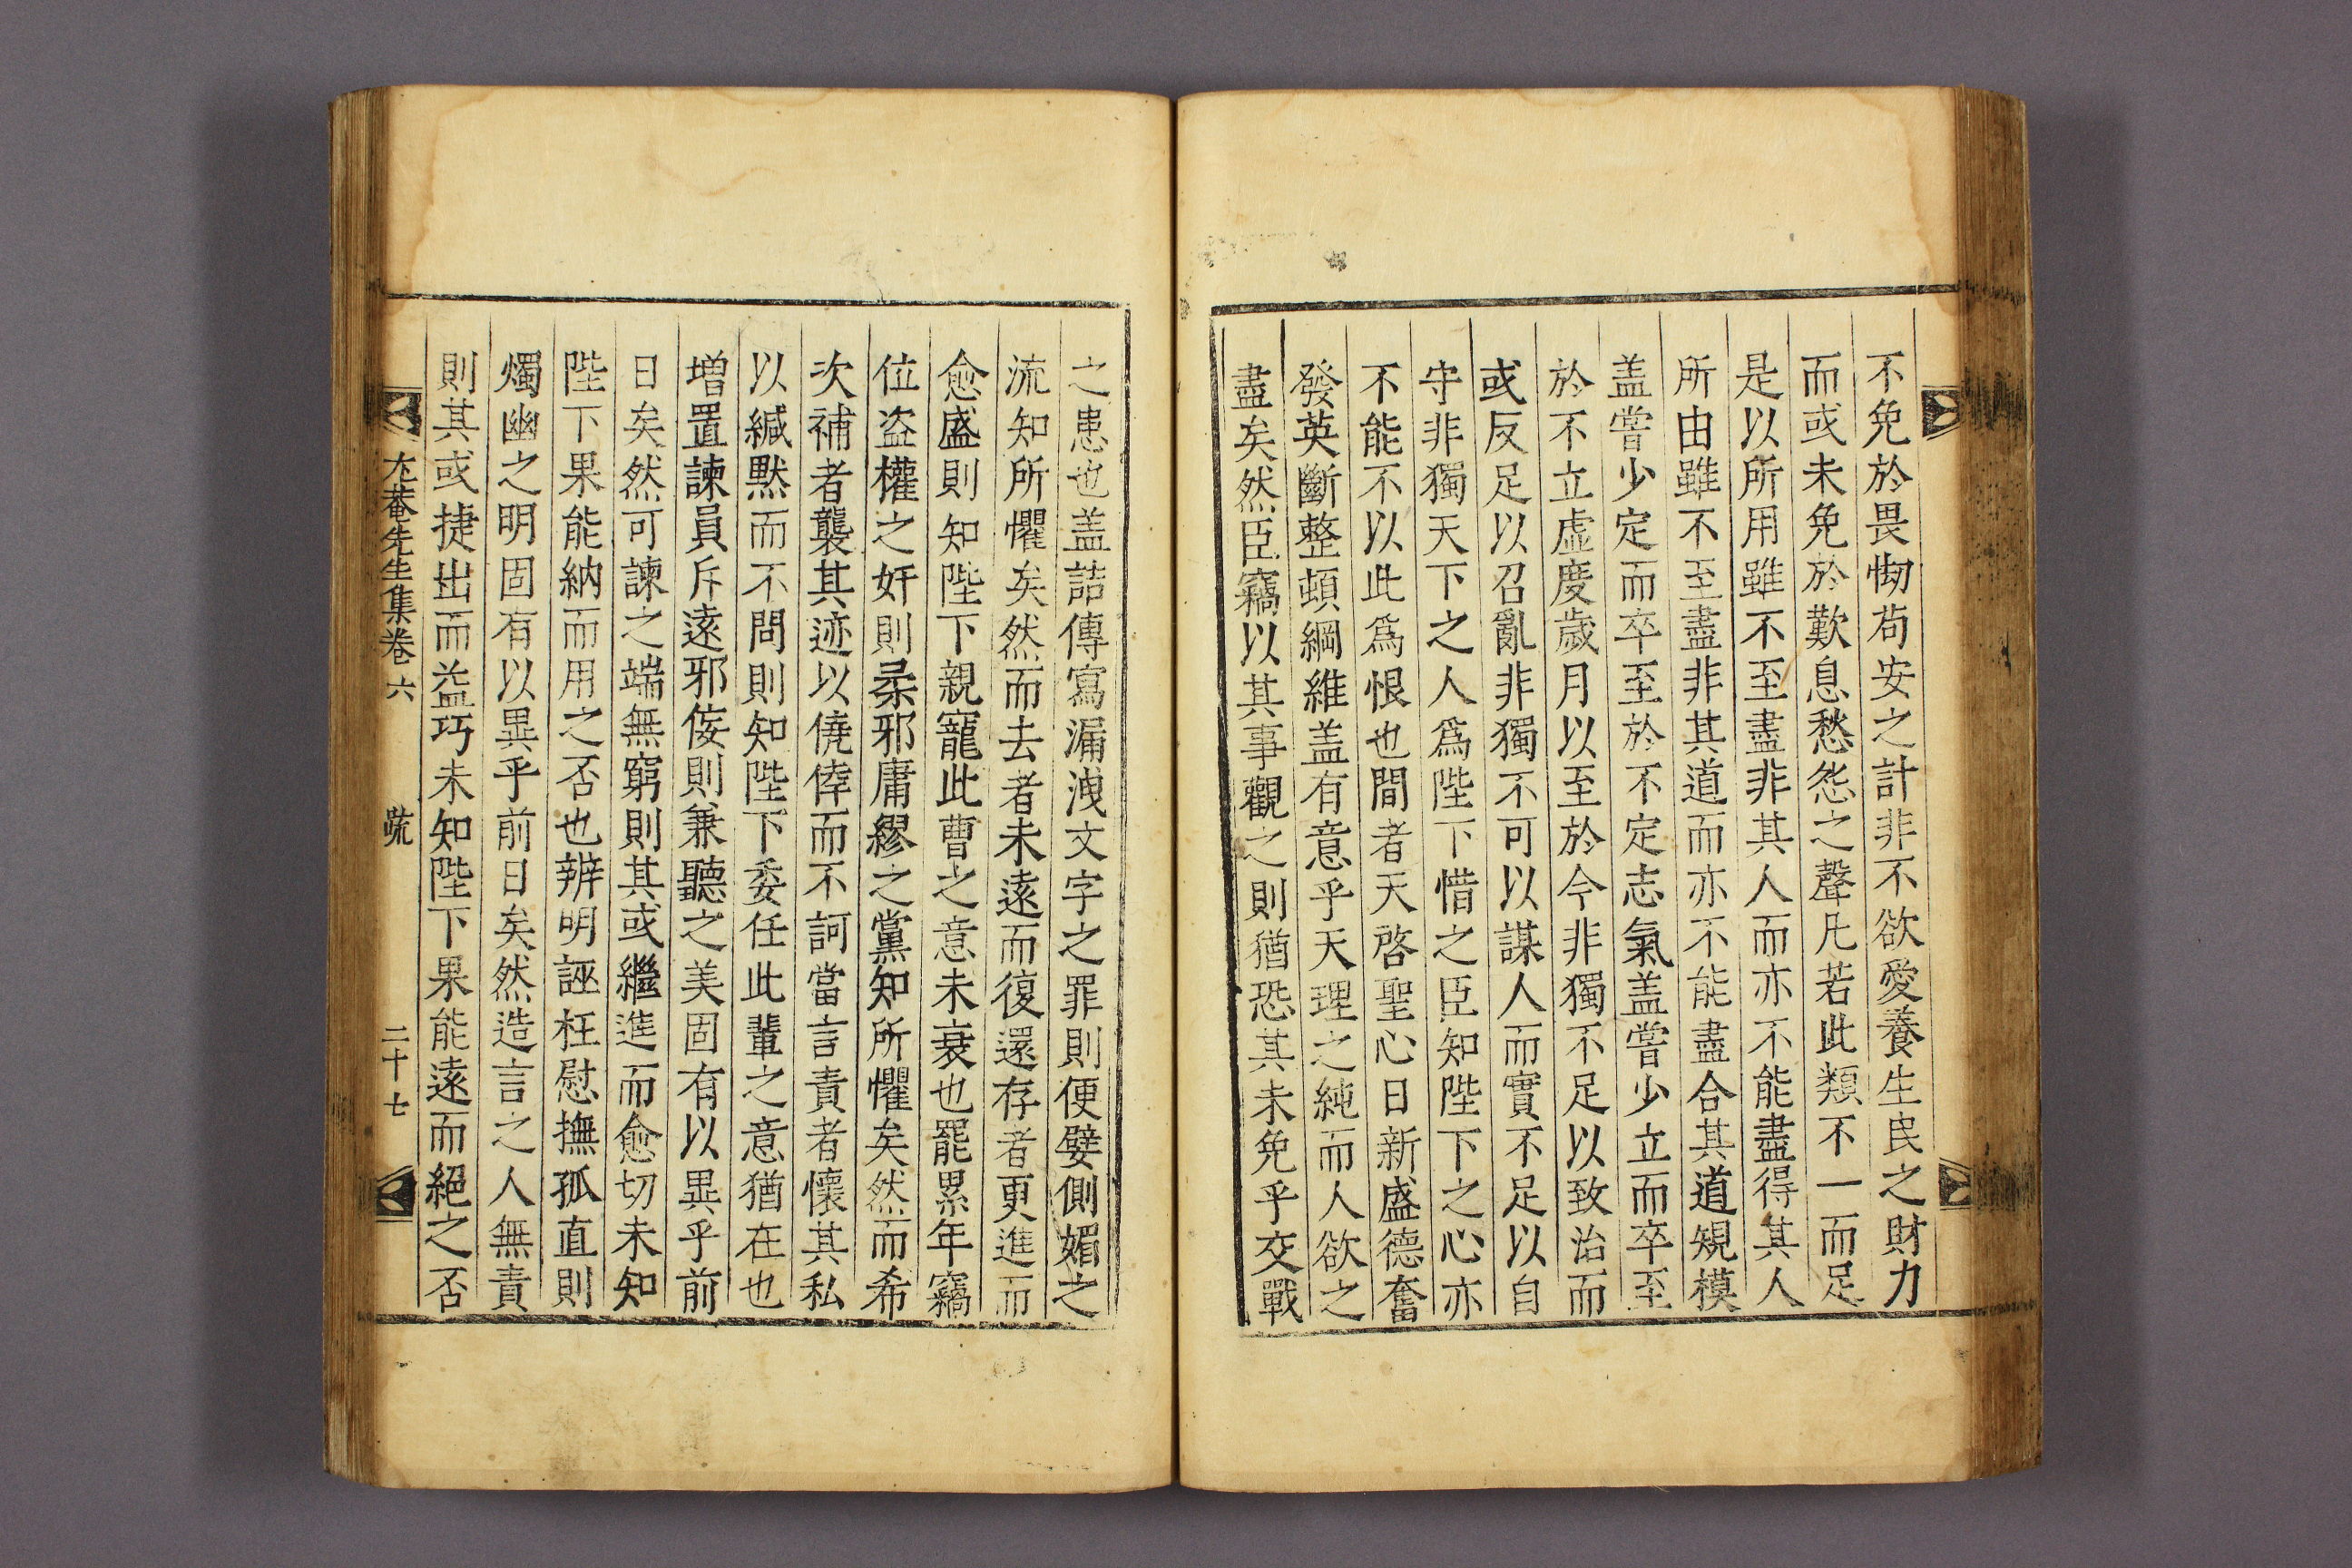 不免於畏㤼苟安之計非不欲愛養生民之財力
而或未免於歎息愁怨之聲凡若此類不一而足
是以所用雖不至盡非其人而亦不能盡得其人
所由雖不至盡非其道而亦不能盡合其道規模
盖嘗少定而卒至於不定志氣盖嘗少立而卒至
於不立虛度歲月以至於今非獨不足以致治而
或反足以召亂非獨不可以謀人而實不足以自
守非獨天下之人爲陛下惜之臣知陛下之心亦
不能不以此爲恨也間者天啓聖心日新盛德奮
發英斷整頓綱維盖有意乎天理之純而人欲之
盡矣然臣竊以其事觀之則猶恐其未免乎交戰
之患也盖詰傳寫漏洩文字之罪則便嬖側媚之
流知所懼矣然而去者未遠而復還存者更進而
愈盛則知陛下親寵此曹之意未衰也罷累年竊
位盗權之奸則柔邪庸繆之黨知所懼矣然而希
次補者襲其迹以僥倖而不訶當言責者懷其私
以緘默而不問則知陛下委任此輩之意猶在也
增置諫員斥遠邪佞則兼聽之美固有以異乎前
日矣然可諫之端無窮則其或繼進而愈切未知
陛下果能納而用之否也辨明誣枉慰撫孤直則
燭幽之明固有以異乎前日矣然造言之人無責
則其或捷出而益巧未知陛下果能遠而絕之否
尤菴先生集卷六 疏 二十七